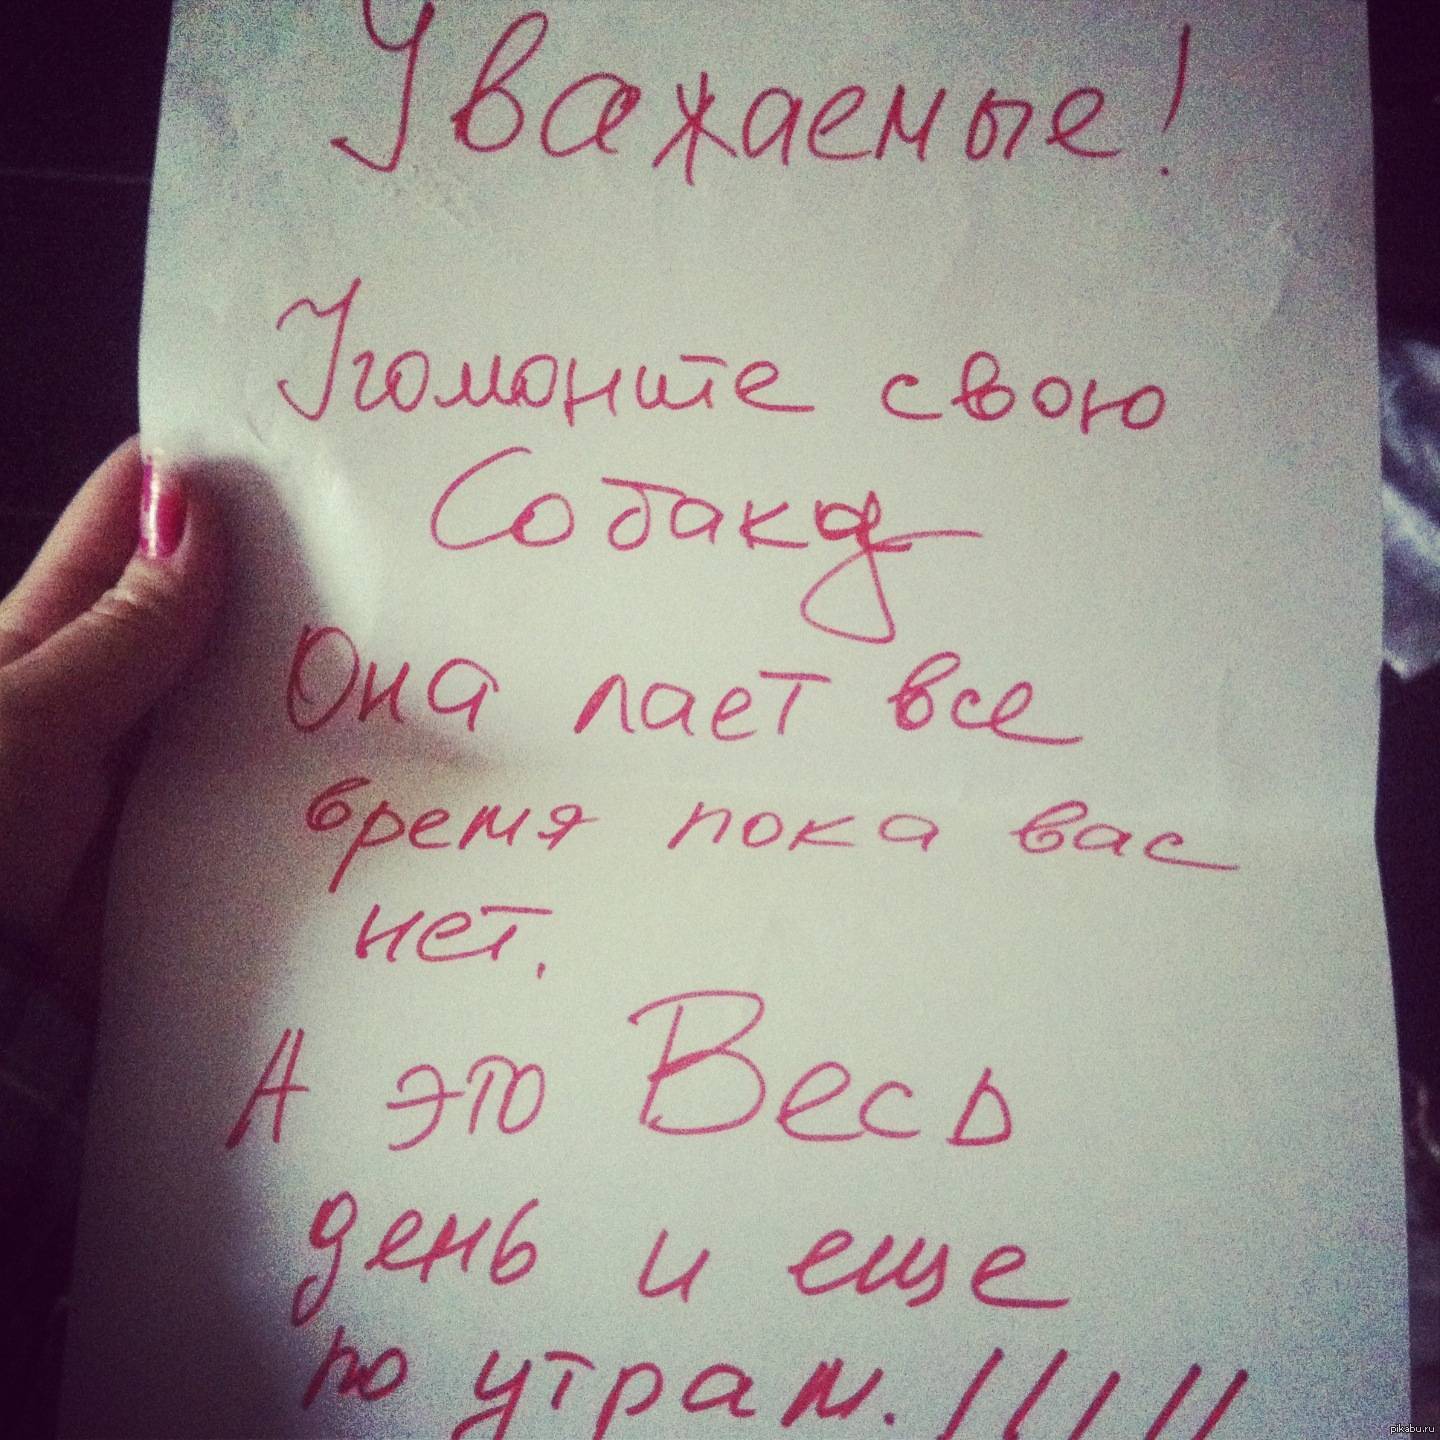 Уважаемые!
Угомоните свою
Собаку
Она лает все
время пока вас
нет.
А это Весь
день и еще
по утрам.!!!!!
pikabu.ru